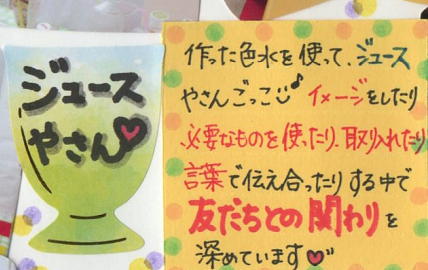 ジュース
やさん♡
作った色水を使って、ジュース
やさんごっこ♪ イメージをしたり
必要なものを使ったり、取り入れたり
言葉で伝え合ったりする中で
友だちとの関わりを
深めています♡